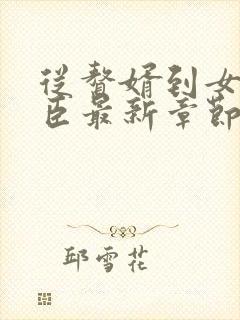 从贅婿到女
臣最新章節
邱雪花